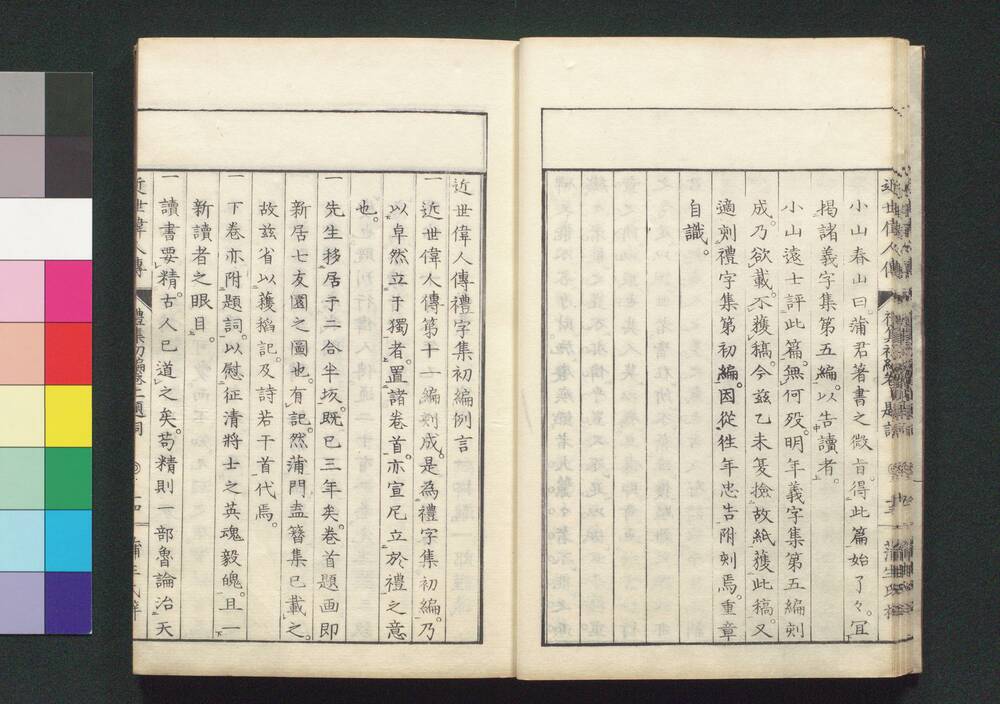 小山春山曰。蒲君著書之微旨。得此篇始了々。宜
揭諸義字集第五編。以告讀者。
小山遠士評此篇。無何歿。明年義字集第五編刻
成。乃欲載。不獲稿。今兹乙未夏撿故紙獲此稿。又
適刻禮字集第初編。因從徃年忠告附刻焉。重章
自識。
近世偉人傳禮字集初編例言
一近世偉人傳第十一編刻成。是為禮字集初編。乃
以卓然立于獨者。置諸卷首。亦宣尼立於禮之意
也。
一先生移居于二合半坂。既已三年矣。卷首題画即
新居七友園之圖也。有記。然蒲門盍簪集已載之。
故兹省以蘐韜記。及詩若干首代焉。
一下卷亦附題詞。以慰征清將士之英魂毅魄。且一
新讀者之眼目。
一讀書要精。古人已道之矣。苟精則一部魯論治天
近世偉人傳